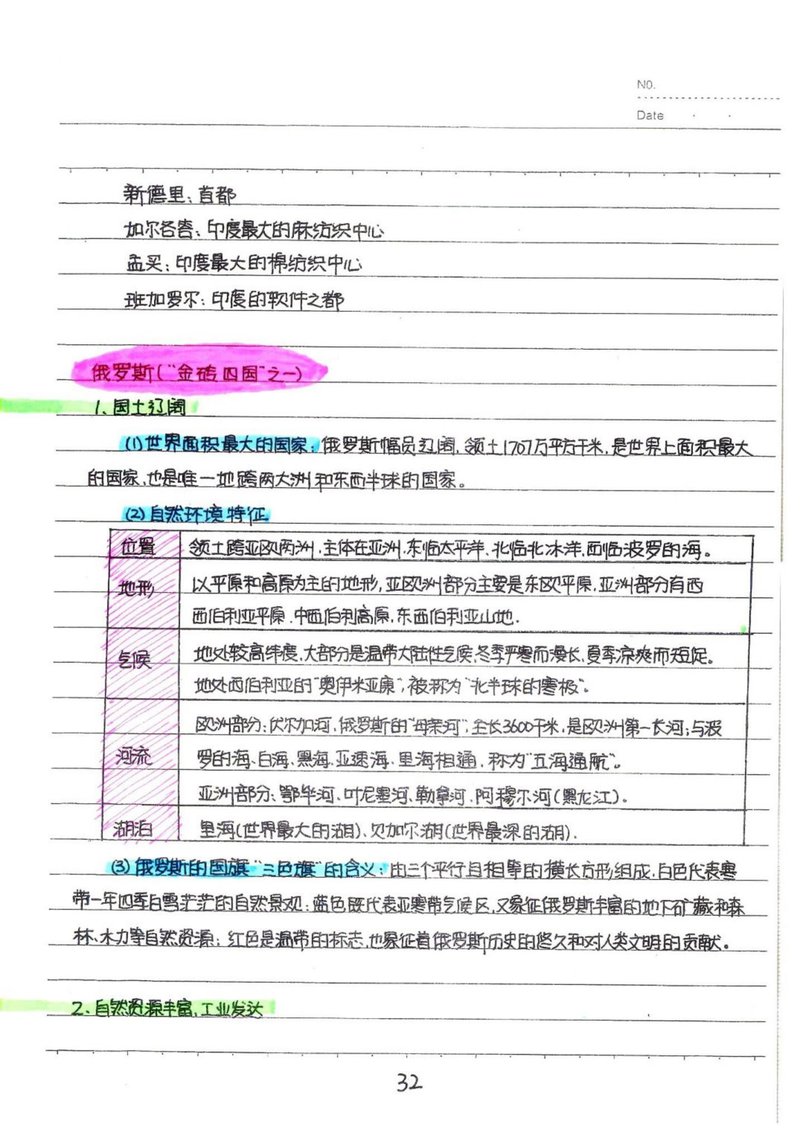 NO.
Date
新德里：首都
加尔各答：印度最大的麻纺织中心
孟买：印度最大的棉纺织中心
班加罗尔：印度的软件之都
俄罗斯（“金砖四国”之一）
1、国土辽阔
(1)世界面积最大的国家：俄罗斯幅员辽阔，领土1707万平方千米，是世界上面积最大
的国家，也是唯一地跨两大洲和东西半球的国家。
(2)自然环境特征
位置 领土跨亚欧两洲，主体在亚洲，东临太平洋、北临北冰洋，西临波罗的海。
地形 以平原和高原为主的地形，亚欧洲部分主要是东欧平原，亚洲部分有西
西伯利亚平原、中西伯利高原，东西伯利亚山地．
气候 地处较高纬度，大部分是温带大陆性气候，冬季严寒而漫长，夏季凉爽而短促。
地处西伯利亚的“奥伊米亚康”，被称为“北半球的寒极”。
欧洲部分：伏尔加河，俄罗斯的“母亲河”，全长3600千米，是欧洲第一长河；与波
河流 罗的海、白海、黑海、亚速海、里海相通，称为“五海通航”。
亚洲部分：鄂毕河、叶尼塞河、勒拿河、阿穆尔河（黑龙江）．
湖泊 里海（世界最大的湖）、贝加尔湖（世界最深的湖）．
(3)俄罗斯的国旗“三色旗”的含义：由三个平行且相等的横长方形组成，白色代表寒
带一年四季白雪茫茫的自然景观；蓝色既代表亚寒带气候区，又象征俄罗斯丰富的地下矿藏和森
林、水力等自然资源；红色是温带的标志，也象征着俄罗斯历史的悠久和对人类文明的贡献。
2、自然资源丰富，工业发达
32